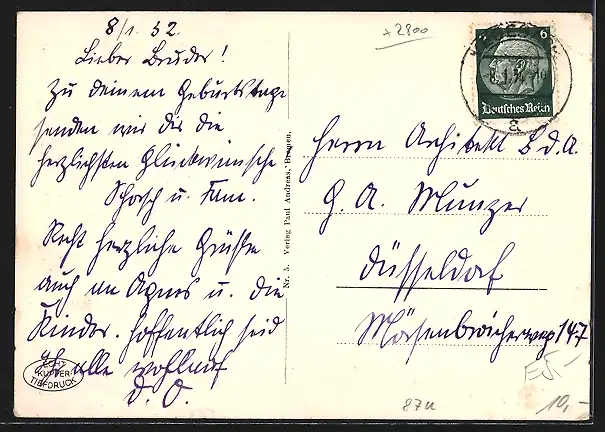 8/1. 52.
Lieber Bruder!
Zu deinem Geburtstage
senden wir dir die
herzlichsten Glückwünsche
Schorsch u. Fam.
Recht herzliche Grüße
auch an Agnes u. die
Kinder. Hoffentlich seid
alle wohlauf
D. O.
ECHT
KUPFER-
TIEFDRUCK
Nr. 5. Verlag Paul Andreas, Bremen.
+2800
6
Deutsches Reich
a
Herrn Architekt B.d.A.
G. A. Munzer
Düsseldorf
Mörsenbroicherweg 147
87u
10,-